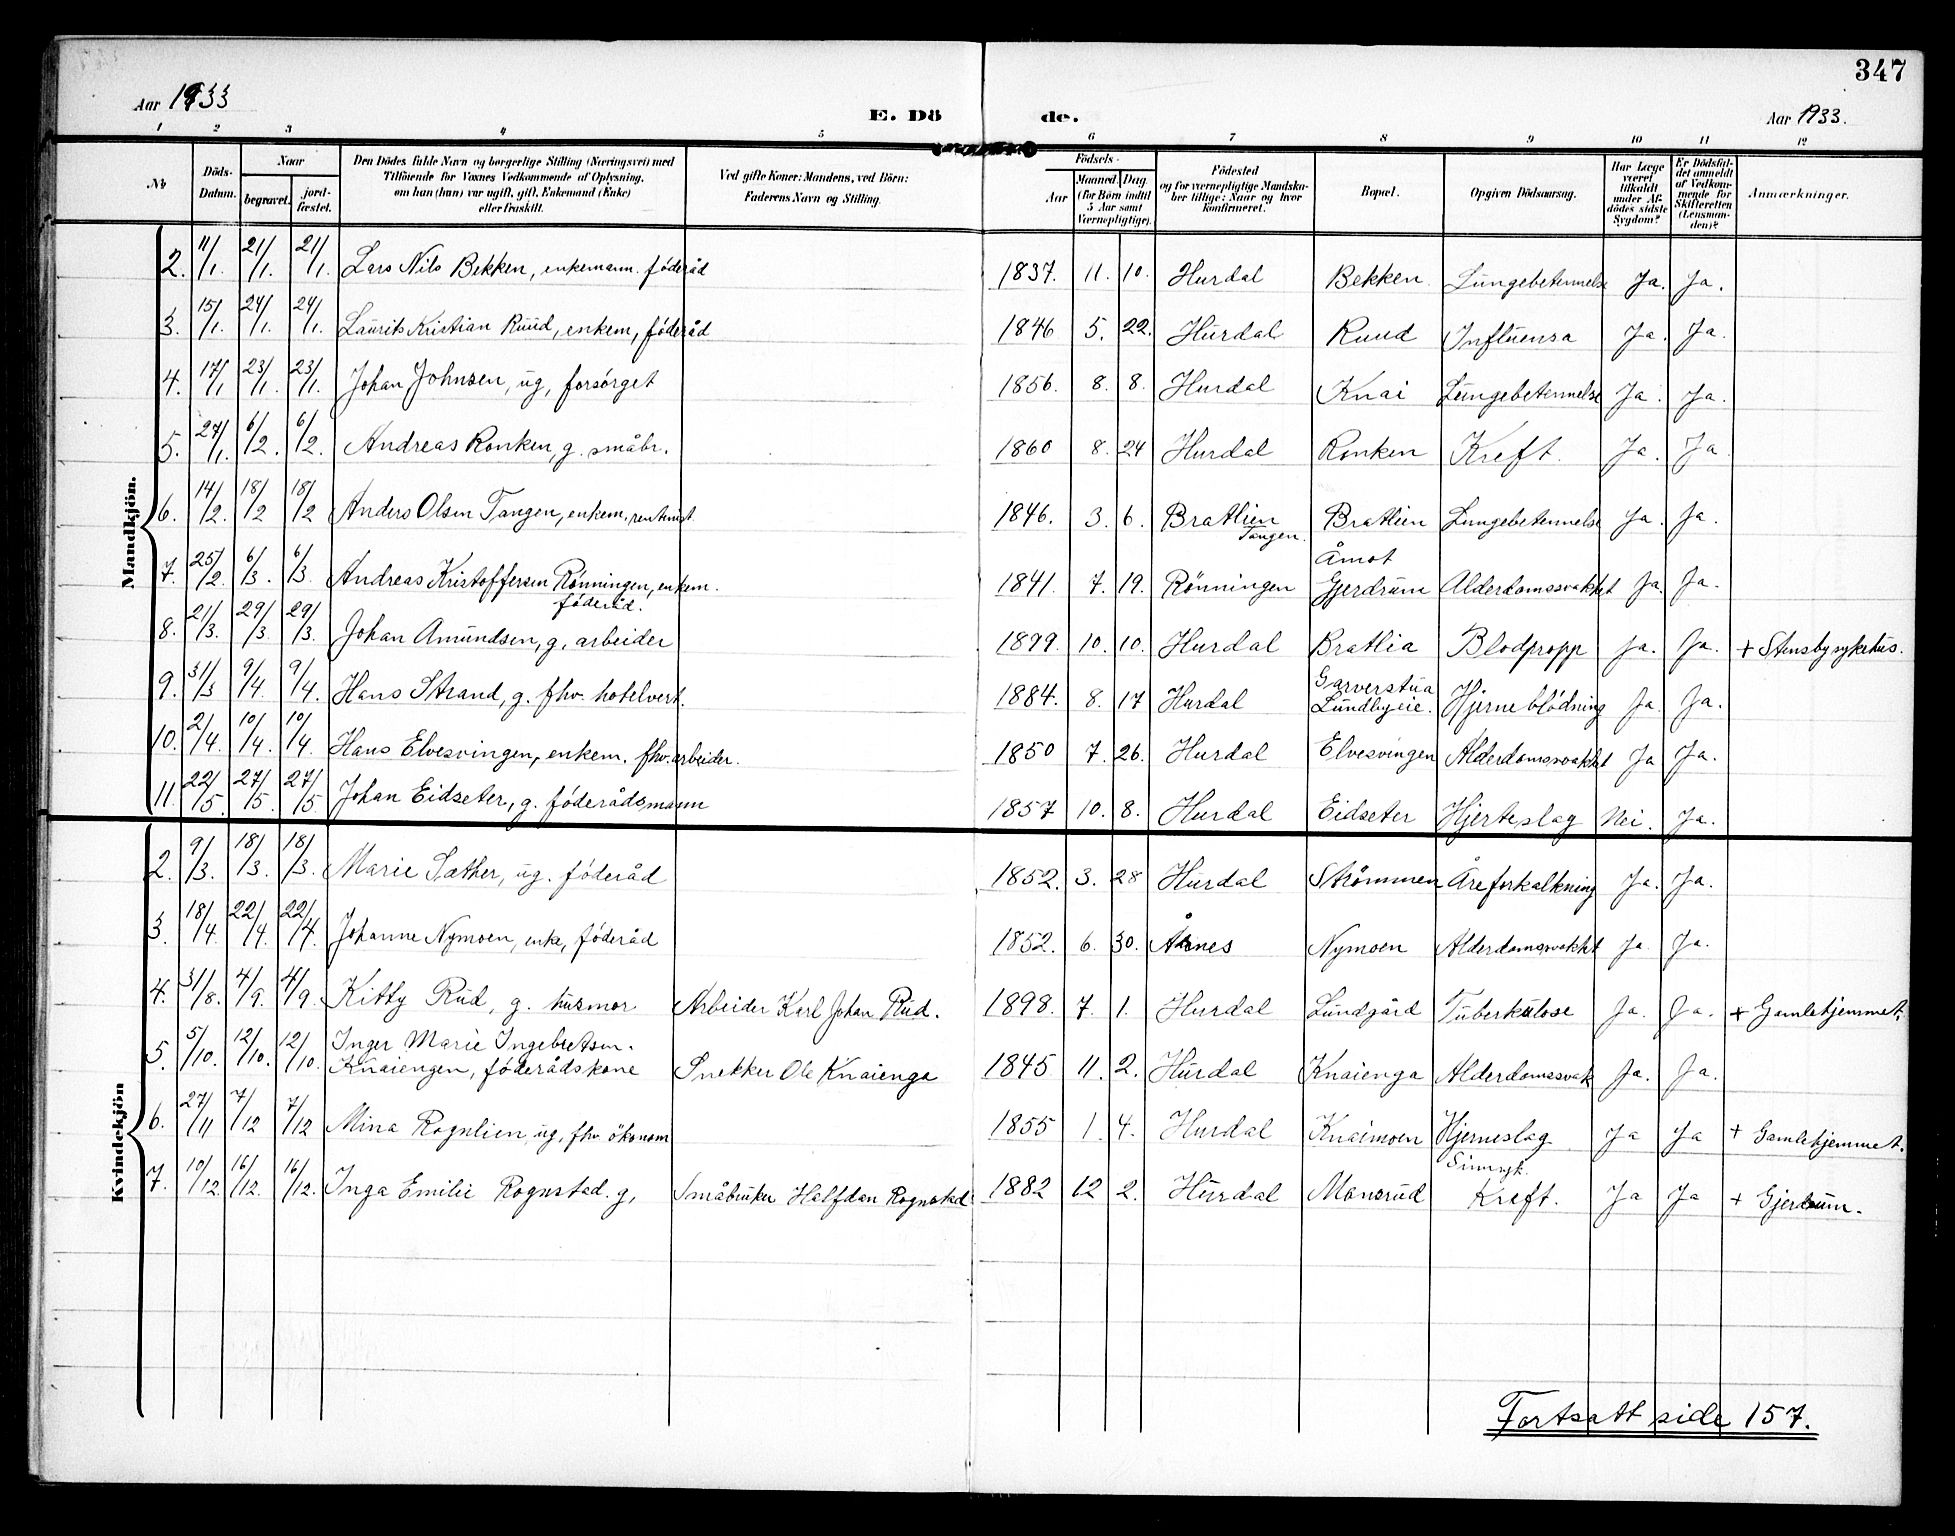 347
Aar 1933
E. Dö de.
Aar 1933.
1 2 3 4 5 6 7 8 9 10 11 12
No
Döds-Datum.
Naar
begravet. jordfæstet.
Den Dödes fulde Navn og borgerlige Stilling (Næringsvei) med
Tilföiende for Voxnes Vedkommende af Oplysning,
om han (hun) var ugift, gift, Enkemand (Enke)
eller fraskilt.
Ved gifte Koner: Mandens, ved Börn:
Faderens Navn og Stilling.
Födsels-
Aar Maaned. Dag
(for Börn indtil
5 Aar samt
Værnepligtige).
Födested
og for værnepligtige Mandskaber tillige: Naar og hvor
konfirmeret.
Bopæl.
Opgiven Dödsaarsag.
Har Læge
været
tilkaldt
under Afdödes sidste
Sygdom?
Er Dödsfaldet anmeldt
af Vedkommende for
Skifteretten
(Lensmanden)?
Anmærkninger.
Mandkjön.
2. 11/1. 21/1. 21/1. Lars Nils Bekken, enkemann. föderåd 1837. 11. 10. Hurdal Bekken. Lungebetennelse Ja. Ja.
3. 15/1. 24/1. 24/1. Laurits Kristian Ruud, enkem, föderåd 1846 5. 22. Hurdal Ruud Influensa Ja. Ja.
4. 17/1 23/1. 23/1. Johan Johnsen, ug, forsörget 1856. 8. 8. Hurdal Knai Lungebetennelse Ja. Ja.
5. 27/1. 6/2. 6/2. Andreas Ronken, g. småbr. 1860 8. 24 Hurdal Ronken Kreft. Ja. Ja
6. 14/2. 18/2 18/2 Anders Olsen Tangen, enkem, rentenist 1846. 3. 6. Bratlien Bratlien Lungebetennelse Ja. Ja.
Tangen.
Åmot
7. 25/2. 6/3. 6/3. Andreas Kristoffersen Rönningen, enkem. 1841. 7. 19. Rönningen Gjerdrum Alderdomssvakhet Ja. Ja.
föderåd.
8. 21/3. 29/3. 29/3. Johan Amundsen, g, arbeider 1899. 10. 10. Hurdal Bratlia Blodpropp Ja. Ja. + Stensby sykehus.
Garverstua
9. 31/3 9/4. 9/4. Hans Strand, g. fhv. hotelvert. 1884. 8. 17 Hurdal Lundbyeie. Hjerneblödning Ja. Ja.
10. 2/4. 10/4. 10/4. Hans Elvesvingen, enkem. fhv. arbeider. 1850 7. 26. Hurdal Elvesvingen Alderdomssvakhet Ja Ja.
11. 22/5. 27/5. 27/5 Johan Eidseter, g. föderådsmann 1857 10. 8. Hurdal Eidseter Hjerteslag Nei. Ja.
Kvindekjön
2. 9/3. 18/3. 18/3. Marie Sæther, ug. föderåd 1852. 3. 28 Hurdal Strömmen Åreforkalkning Ja. Ja.
3. 18/4. 22/4. 22/4. Johanne Nymoen, enke, föderåd 1852. 6. 30. Årnes Nymoen Alderdomssvakhet Ja. Ja.
4. 31/8. 4/9. 4/9. Kitty Rud, g. husmor Arbeider Karl Johan Rud. 1898. 7. 1. Hurdal Lundgård Tuberkulose Ja. Ja. + Gamlehjemmet.
Inger Marie Ingebretsen.
5. 5/10. 12/10. 12/10. Knaiengen, föderådskone Snekker Ole Knaienga 1845 11. 2. Hurdal Knaienga Alderdomssvak Ja. Ja.
6. 27/11 7/12 7/12 Mina Rognlien, ug, fhv. ökonom 1855 1. 4. Hurdal Knaimoen Hjerneslag Ja Ja + Gamlehjemmet.
Sinnsyk.
7. 10/12. 16/12. 16/12. Inga Emilie Rognstad. g, Småbruker Halfdan Rognstad 1882 12 2. Hurdal Mansrud Kreft. Ja Ja + Gjerdrum.
Fortsatt side 157.